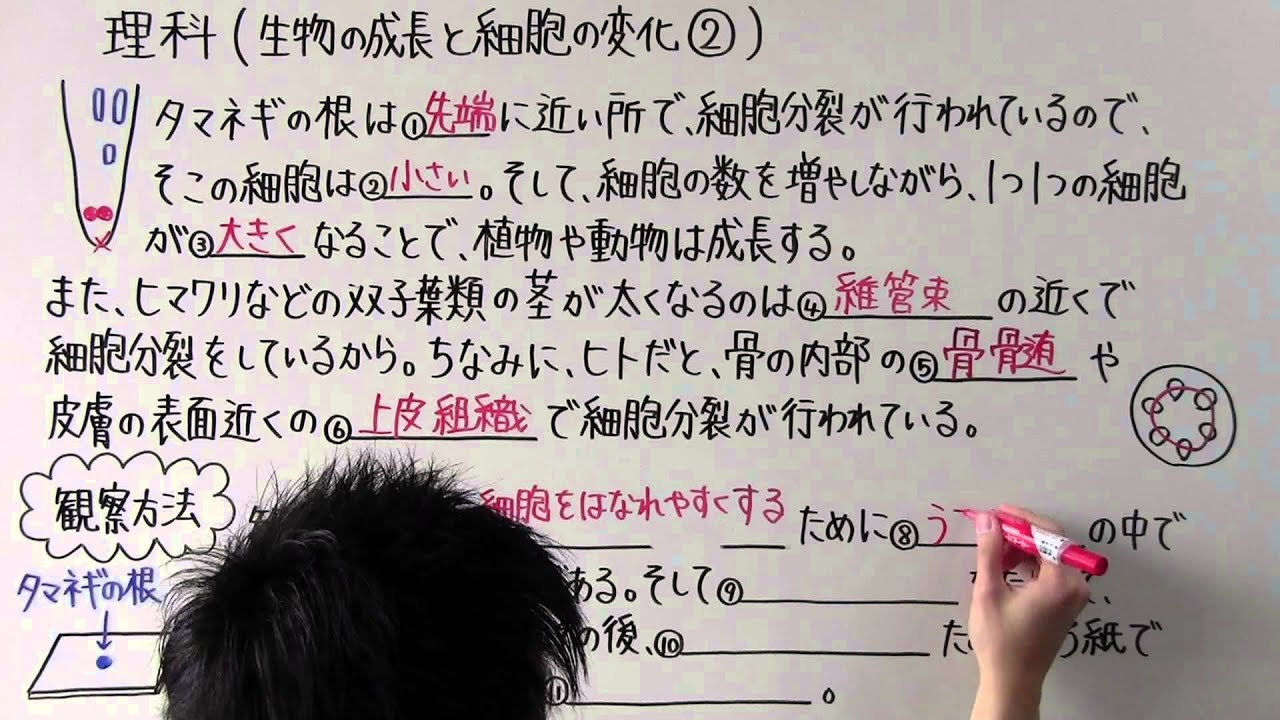 理科(生物の成長と細胞の変化②)
タマネギの根は①先端に近い所で、細胞分裂が行われているので、
そこの細胞は②小さい。そして、細胞の数を増やしながら、1つ1つの細胞
が③大きくなることで、植物や動物は成長する。
また、ヒマワリなどの双子葉類の茎が太くなるのは④維管束の近くで
細胞分裂をしているから。ちなみに、ヒトだと、骨の内部の⑤骨髄や
皮膚の表面近くの⑥上皮組織で細胞分裂が行われている。
観察方法
細胞をはなれやすくするために⑧う の中で
タマネギの根
ある。そして⑨
の後、⑩ う紙で
。